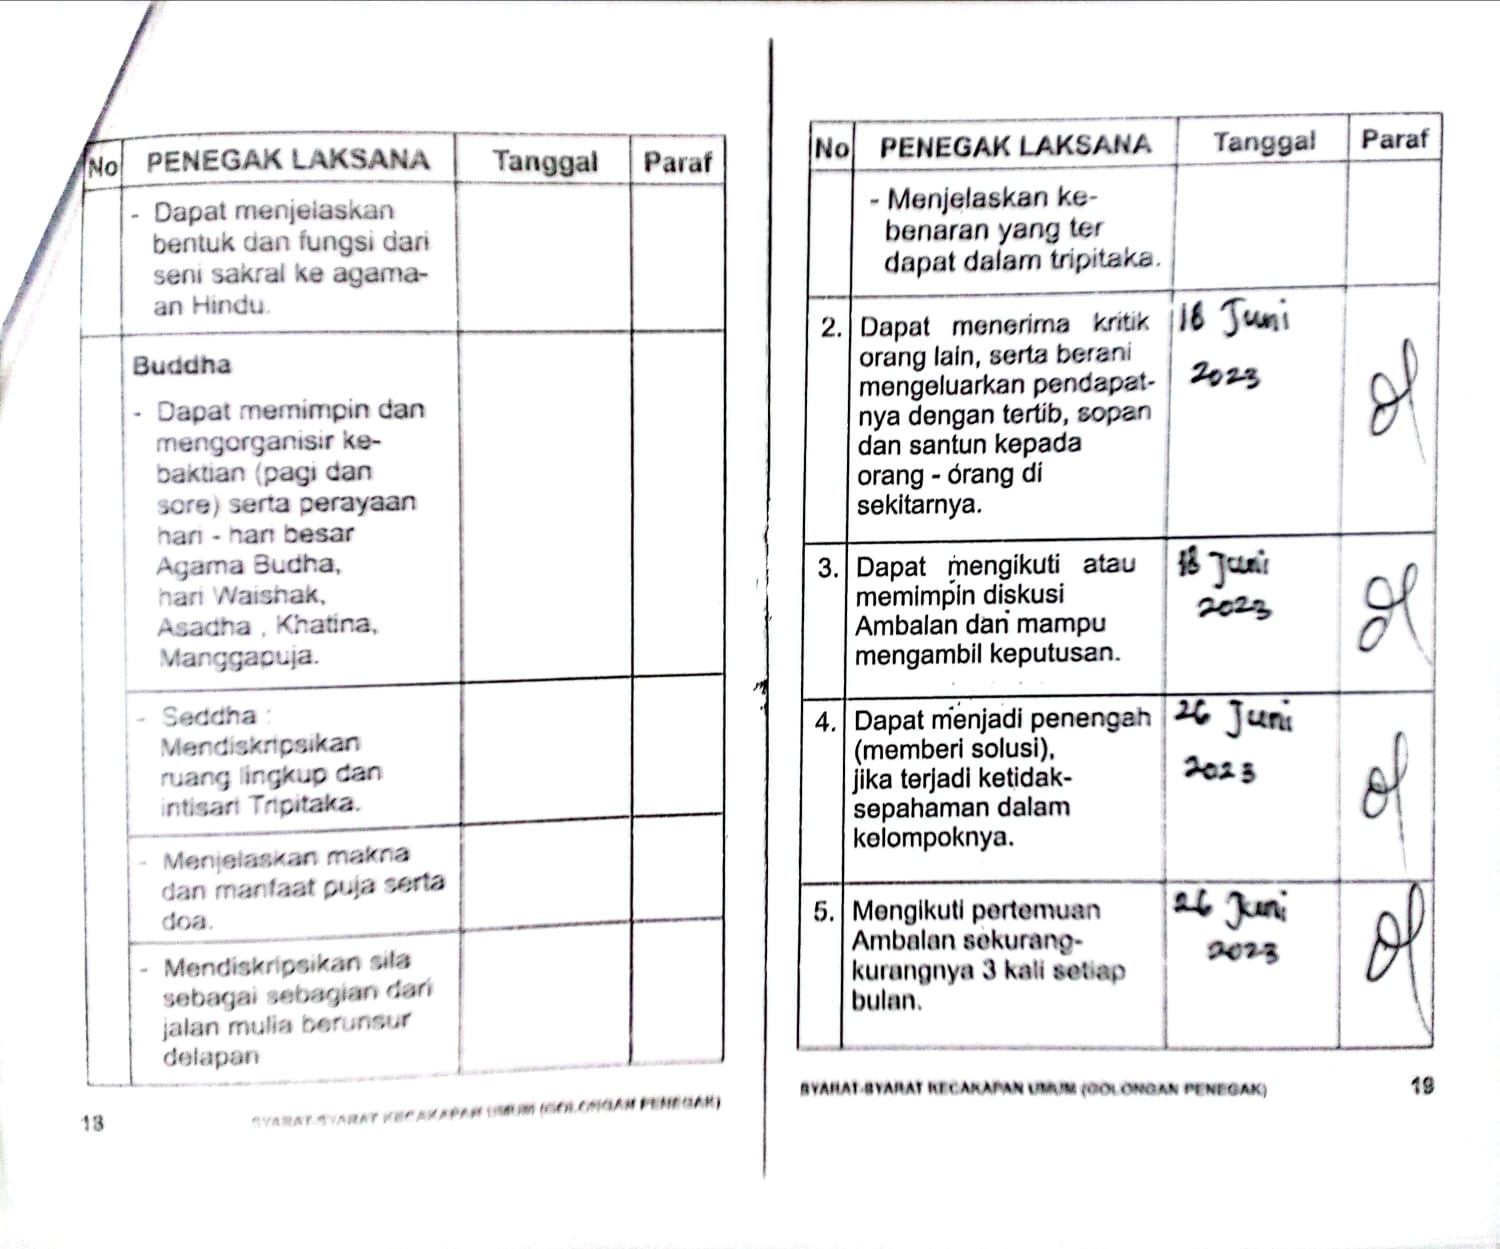 No PENEGAK LAKSANA Tanggal Paraf
- Dapat menjelaskan
bentuk dan fungsi dari
seni sakral ke agama-
an Hindu.
Buddha
- Dapat memimpin dan
mengorganisir ke-
baktian (pagi dan
sore) serta perayaan
hari - hari besar
Agama Budha,
hari Waishak,
Asadha , Khatina,
Manggapuja.
- Seddha :
Mendiskripsikan
ruang lingkup dan
intisari Tripitaka.
- Menjelaskan makna
dan manfaat puja serta
doa.
- Mendiskripsikan sila
sebagai sebagian dari
jalan mulia berunsur
delapan
18 SYARAT-SYARAT KECAKAPAN UMUM (GOLONGAN PENEGAK)
No PENEGAK LAKSANA Tanggal Paraf
- Menjelaskan ke-
benaran yang ter
dapat dalam tripitaka.
2. Dapat menerima kritik 18 Juni
orang lain, serta berani
mengeluarkan pendapat- 2023
nya dengan tertib, sopan
dan santun kepada
orang - orang di
sekitarnya.
3. Dapat mengikuti atau 18 Juni
memimpin diskusi 2023
Ambalan dan mampu
mengambil keputusan.
4. Dapat menjadi penengah 26 Juni
(memberi solusi),
jika terjadi ketidak- 2023
sepahaman dalam
kelompoknya.
5. Mengikuti pertemuan 26 Juni
Ambalan sekurang- 2023
kurangnya 3 kali setiap
bulan.
SYARAT-SYARAT KECAKAPAN UMUM (GOLONGAN PENEGAK) 19